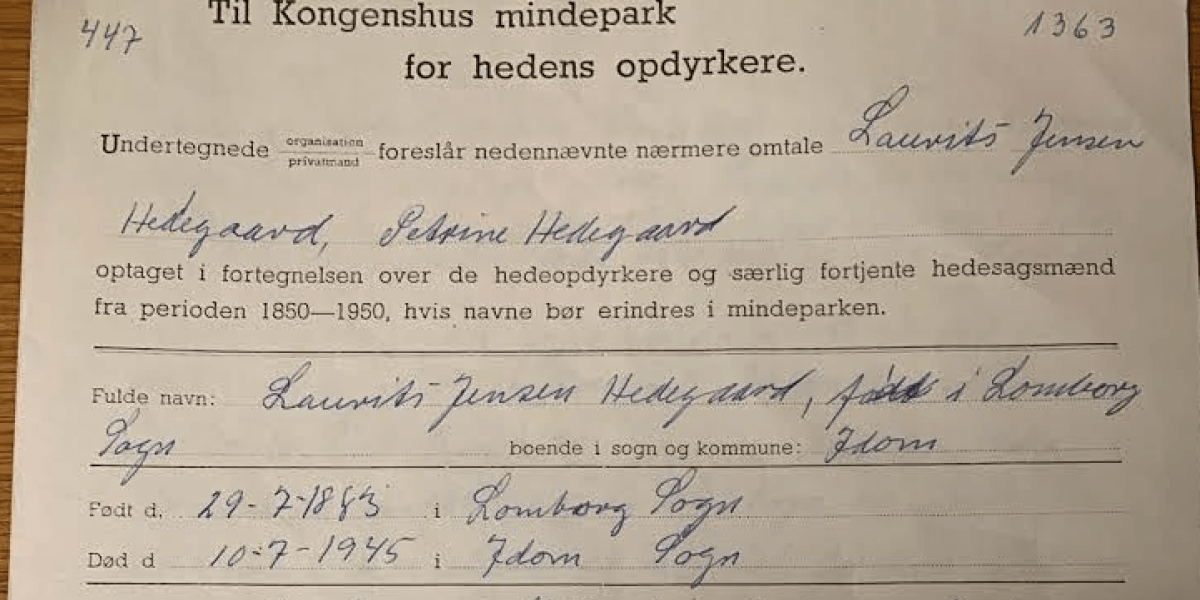 Til Kongenshus mindepark
447 1363
for hedens opdyrkere.
Undertegnede organisation privatmand foreslår nedennævnte nærmere omtale Laurits Jensen
Hedegaard, Petrine Hedegaard
optaget i fortegnelsen over de hedeopdyrkere og særlig fortjente hedesagsmænd
fra perioden 1850—1950, hvis navne bør erindres i mindeparken.
Fulde navn: Laurits Jensen Hedegaard, født i Lomborg
Sogn boende i sogn og kommune: Idom
Født d. 29-7-1883 i Lomborg Sogn
Død d 10-7-1945 i Idom Sogn